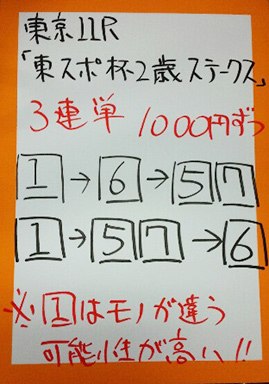 東京11R
「東スポ杯2歳ステークス」
3連単 1000円ずつ
1→6→57
1→57→6
※1はモノが違う
可能性が高い!!